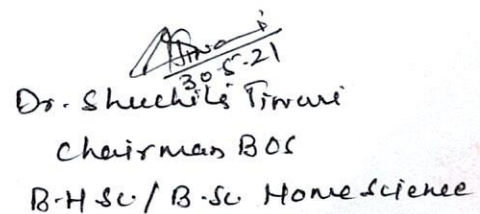 Tiwari
30-5-21
Dr. Shuchita Tiwari
Chairman BOS
B.H Sc. / B.Sc. Home Science